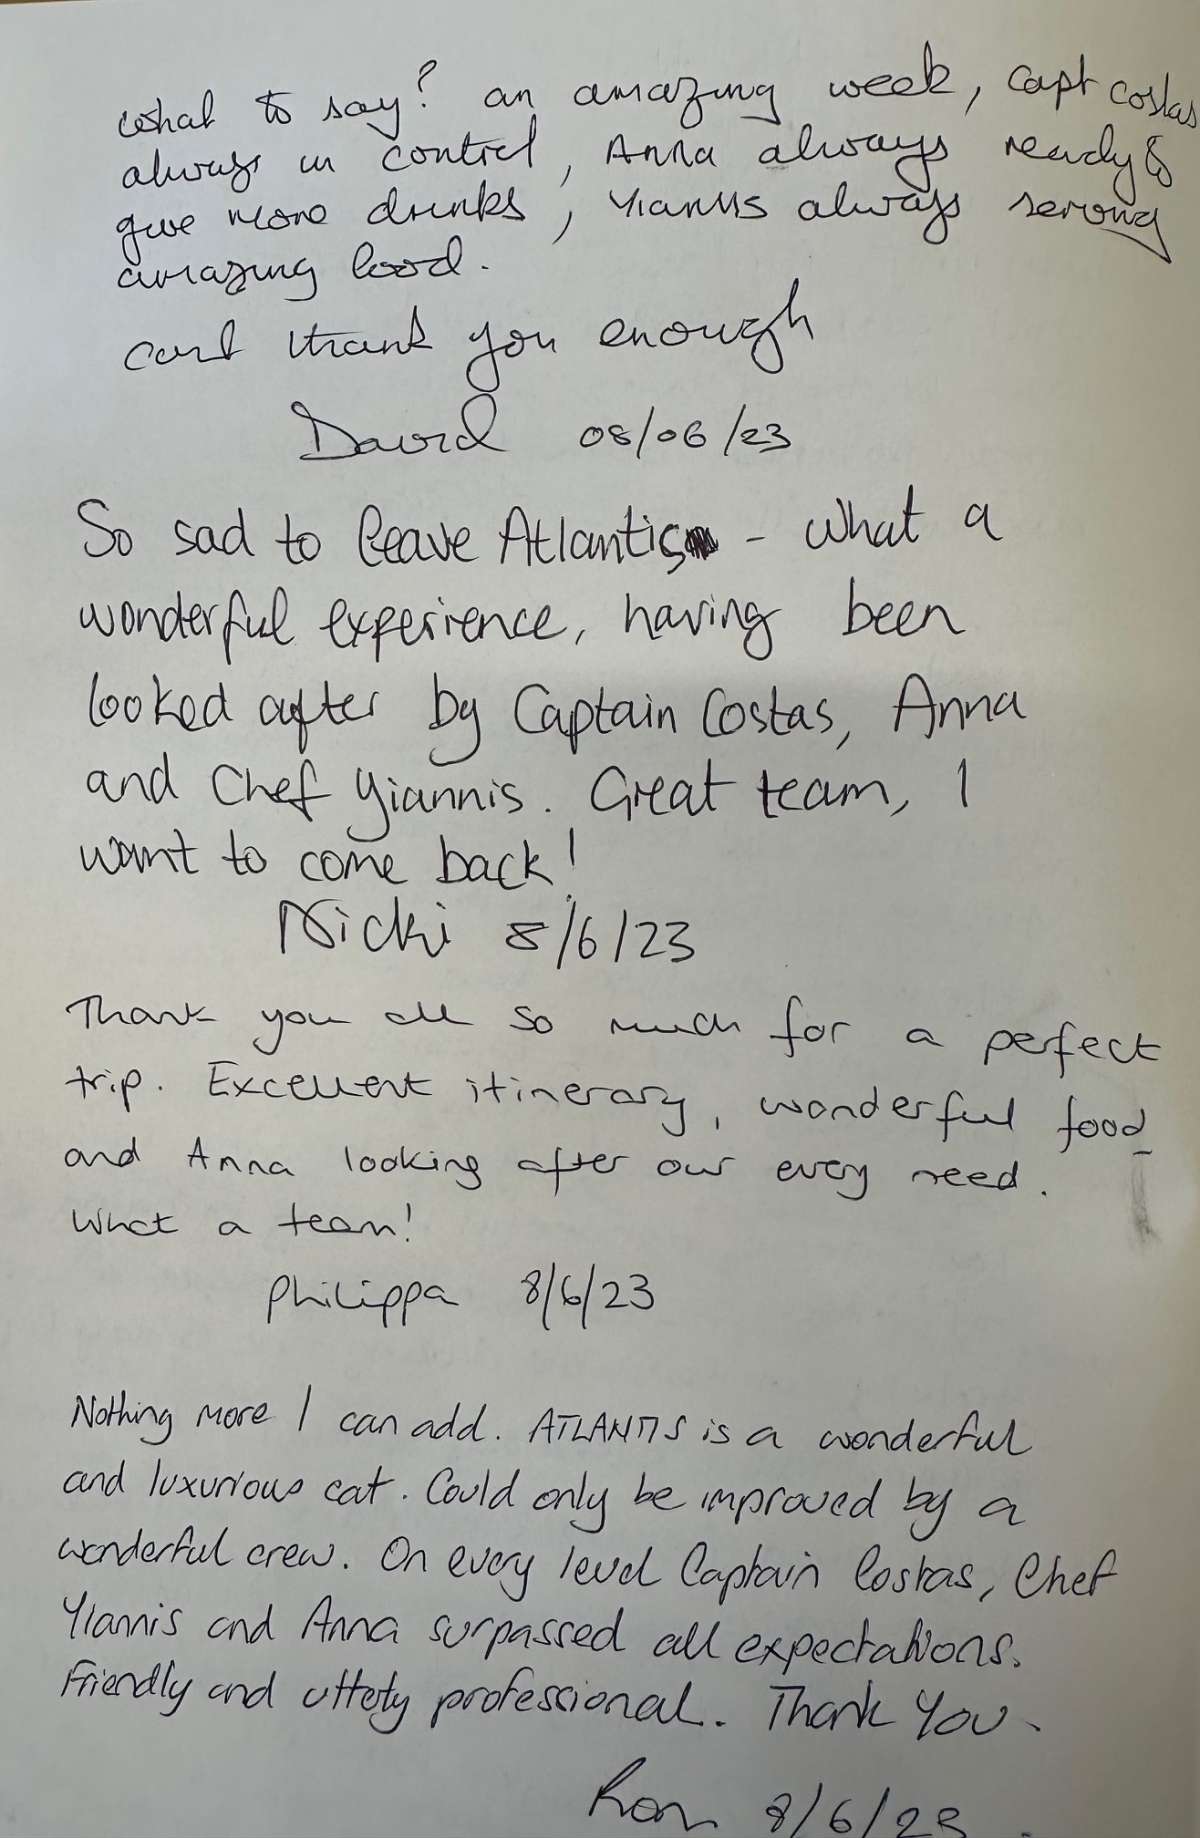 What to say? an amazing week, Capt Costas
always in control, Anna always ready to
give more drinks, Yiannis always serving
amazing food.
cant thank you enough
David 08/06/23
So sad to leave Atlantis - what a
wonderful experience, having been
looked after by Captain Costas, Anna
and Chef Yiannis. Great team, I
want to come back!
Nicki 8/6/23
Thank you all so much for a perfect
trip. Excellent itinerary, wonderful food
and Anna looking after our every need.
What a team!
Philippa 8/6/23
Nothing more I can add. ATLANTIS is a wonderful
and luxurious cat. Could only be improved by a
wonderful crew. On every level Captain Costas, Chef
Yiannis and Anna surpassed all expectations.
Friendly and utterly professional. Thank You.
Ron 8/6/23.